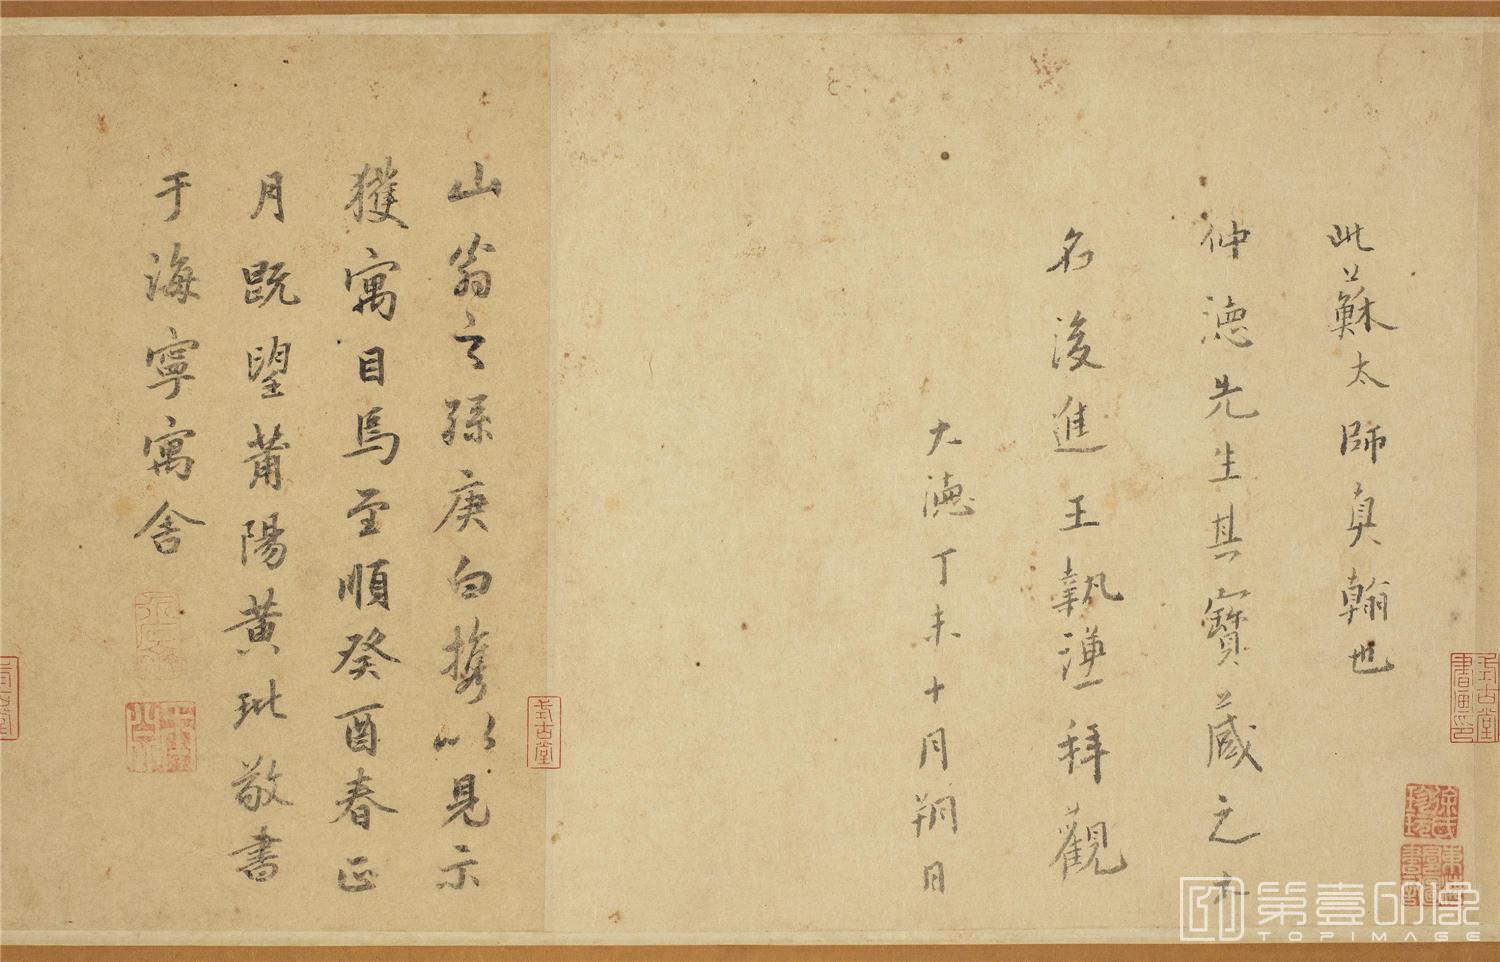 此蘇太師真翰也
仲德先生其寶藏之大
名後進王執謙拜觀
大德丁未十月朔日
山翁之孫庚白攜以見示
獲寓目焉至順癸酉春正
月既望莆陽黃玭敬書
于海寧寓舍
式古堂書畫印
式古堂
第壹印像
TOPIMAGE